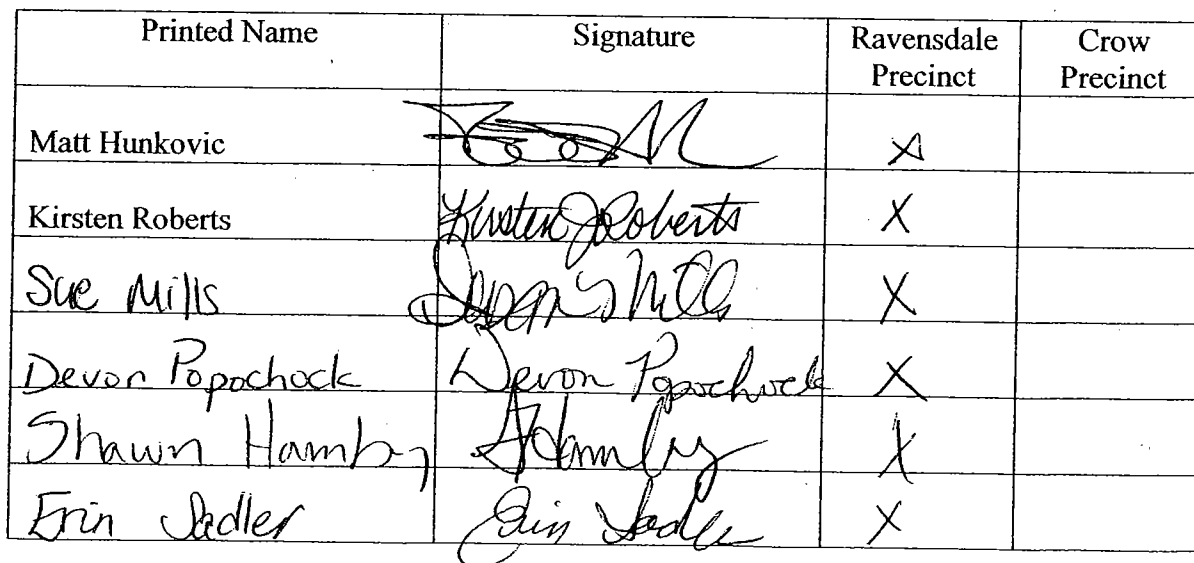 Printed Name Signature Ravensdale Precinct Crow Precinct
Matt Hunkovic X
Kirsten Roberts Kirsten J Roberts X
Sue Mills Susan S Mills X
Devon Popochock Devon Popochock X
Shawn Hamby SHamby X
Erin Sadler Erin Sadler X